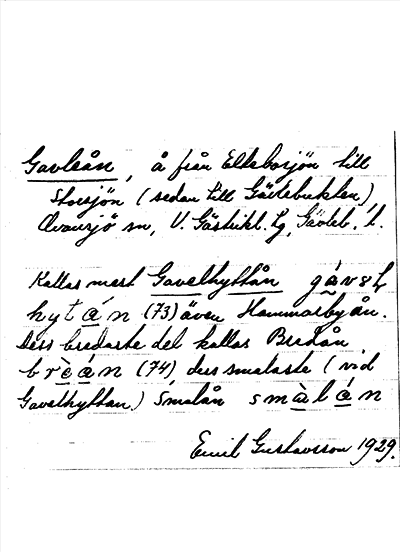 Gavleån, å från Ottsbosjön till
Storsjön (sedan till Gävlebukten),
Ovansjö sn, V. Gästrikl. tg, Gävleb. l.
Kallas mest Gavelhyttån gávəL
hytán (73) även Hammarbyån.
Dess bredaste del kallas Bredån
brèán (74) dess smalaste (vid
Gavelhyttan) Smalån smàlán
Emil Gustavsson 1929.